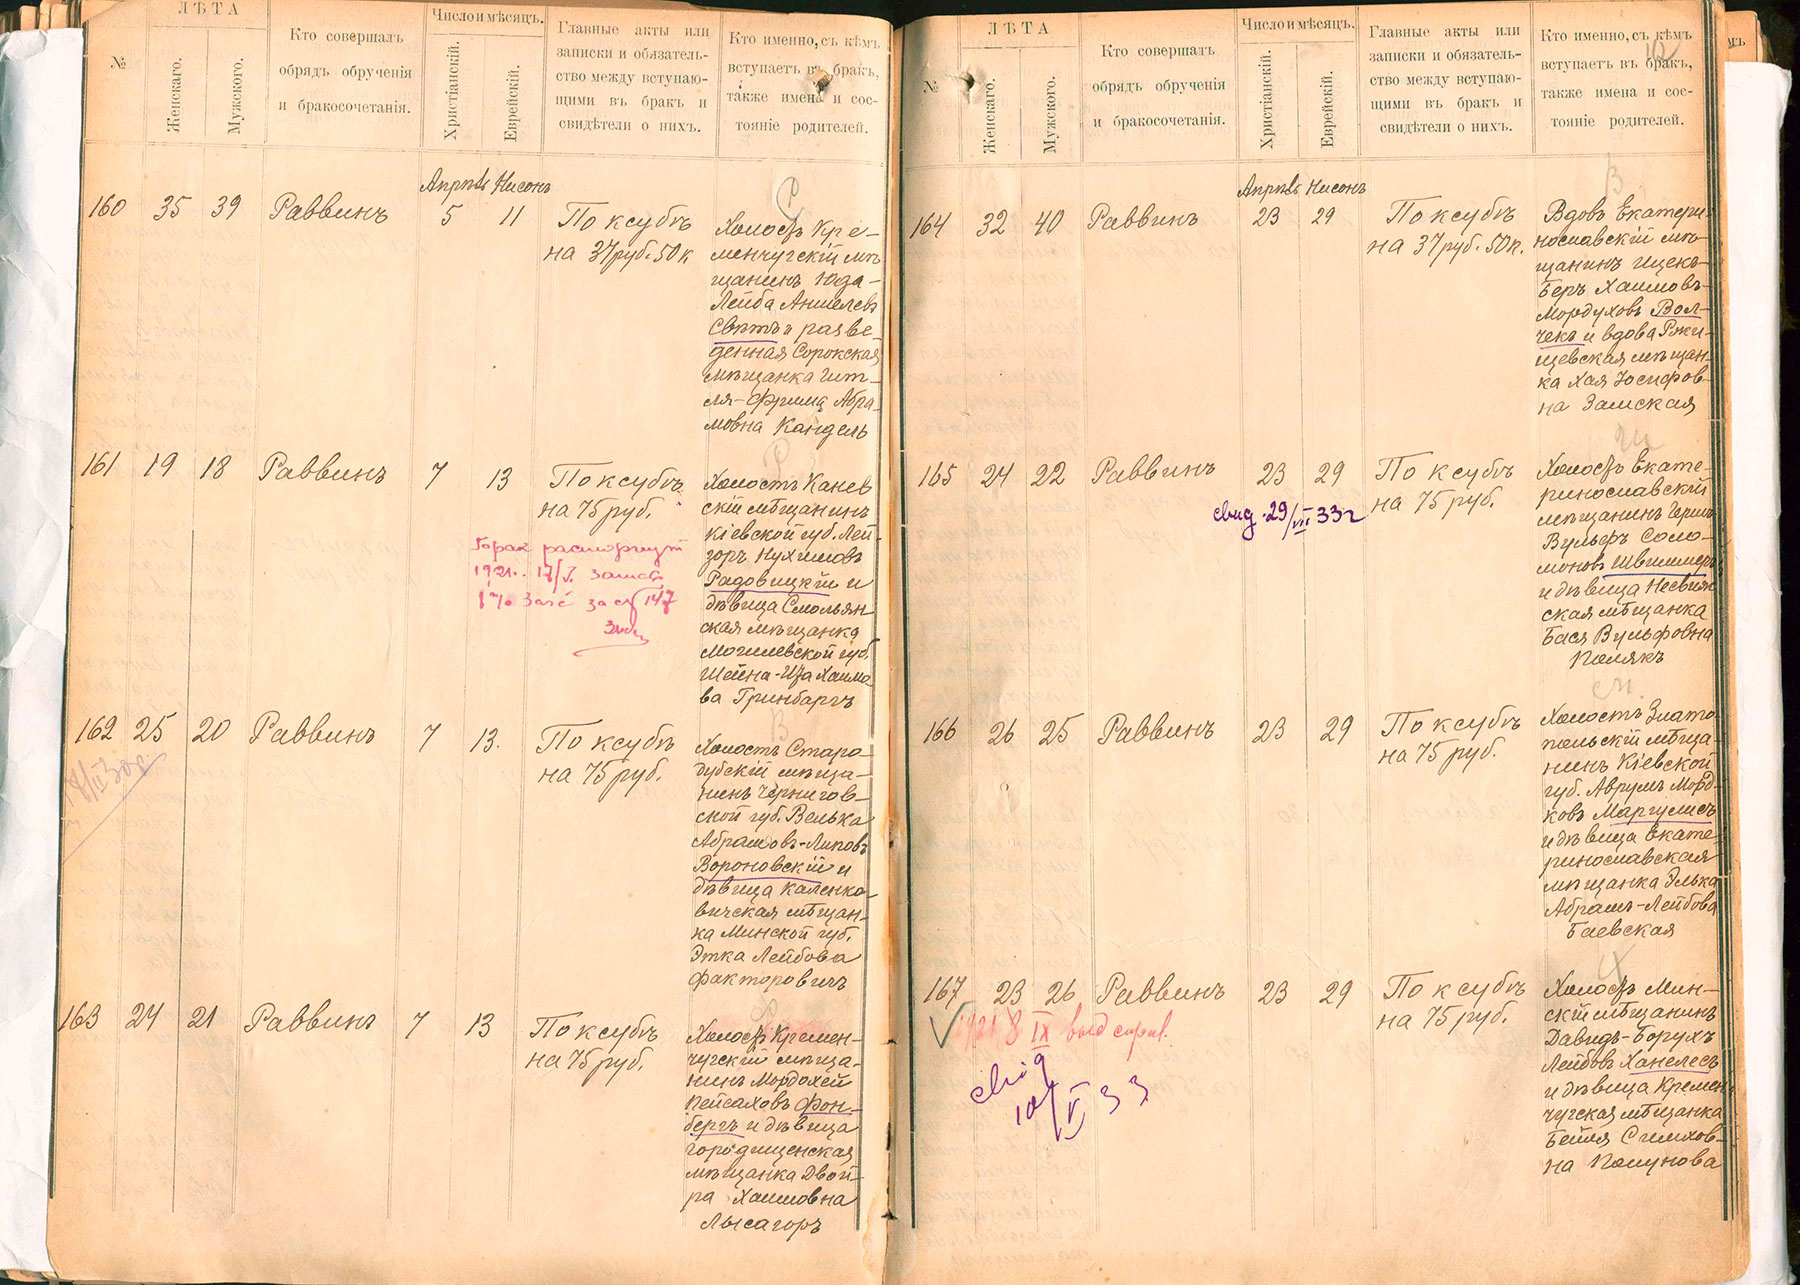 ЛѢТА
Число и мѣсяцъ.
№
Женскаго.
Мужского.
Кто совершалъ
обрядъ обрученія
и бракосочетанія.
Христіанскій.
Еврейскій.
Главные акты или
записки и обязатель-
ство между вступаю-
щими въ бракъ и
свидѣтели о нихъ.
Кто именно, съ кѣмъ
вступаетъ въ бракъ,
также имена и сос-
тояніе родителей.
Апрѣль Нисонъ
160 35 39 Раввинъ 5 11
По ксубѣ
на 37 руб. 50 к
Холостъ Кре-
менчугскій мѣ
щанинъ Юда-
Лейба Аншелевъ
Свѣтъ и разве-
денная Сорокская
мѣщанка Гит-
ля-Фрима Абра-
мовна Кандель
161 19 18 Раввинъ 7 13
По ксубѣ
на 75 руб.
Бракъ расторгнут
1921. 17/V. Запись
147
Холостъ Канев
скій мѣщанинъ
Кіевской губ. Лей
зоръ Нухимовъ
Радовицкій и
дѣвица Смольян
ская мѣщанка
Могилевской губ.
Шейна-Иза Хаимо
ва Гринбаргъ
162 25 20 Раввинъ 7 13.
По ксубѣ
на 75 руб.
Холостъ Старо-
дубскій мѣща-
нинъ Чернигов-
ской губ. Велька
Абрамовъ-Липовъ
Вороновскій и
дѣвица Каленко-
вичская мѣщан-
ка Минской губ.
Этка Лейбова
Факторовичъ
163 24 21 Раввинъ 7 13
По ксубѣ
на 75 руб.
Холостъ Кремен-
чугскій мѣща-
нинъ Мордохей
Пейсаховъ Фон-
бергъ и дѣвица
Городищенская
мѣщанка Двой-
ра Хаимовна
Лысагоръ
ЛѢТА
Число и мѣсяцъ.
№
Женскаго.
Мужского.
Кто совершалъ
обрядъ обрученія
и бракосочетанія.
Христіанскій.
Еврейскій.
Главные акты или
записки и обязатель-
ство между вступаю-
щими въ бракъ и
свидѣтели о нихъ.
Кто именно, съ кѣмъ
вступаетъ въ бракъ,
также имена и сос-
тояніе родителей.
Апрѣль Нисонъ
164 32 40 Раввинъ 23 29
По ксубѣ
на 37 руб. 50 к.
Вдовъ Екатери-
нославскій мѣ-
щанинъ Ицекъ-
Беръ Хаимовъ-
Мордуховъ Вол-
чекъ и вдова Рожи-
щевская мѣщан-
ка Хая Іосифов-
на Замская
165 24 22 Раввинъ 23 29
По ксубѣ
на 75 руб.
свид. 29/VII 33 г
Холостъ Екате-
ринославскій
мѣщанинъ Герш
Вульфъ Соло-
моновъ Швиммеръ
и дѣвица Несвиж
ская мѣщанка
Бася Вульфовна
Полякъ
166 26 25 Раввинъ 23 29
По ксубѣ
на 75 руб.
Холостъ Злато
польскій мѣща-
нинъ Кіевской
губ. Аврумъ Морд-
ковъ Маргулисъ
и дѣвица Екате-
ринославская
мѣщанка Элька
Абрамъ-Лейбова
Баевская
167 23 26 Раввинъ 23 29
По ксубѣ
на 75 руб.
1921 8 IX выд справ.
свид
10/V 33
Холостъ Мин-
скій мѣщанинъ
Давидъ-Борухъ
Лейбовъ Ханелесъ
и дѣвица Кремен
чугская мѣщанка
Бейля Симхов-
на Полунова